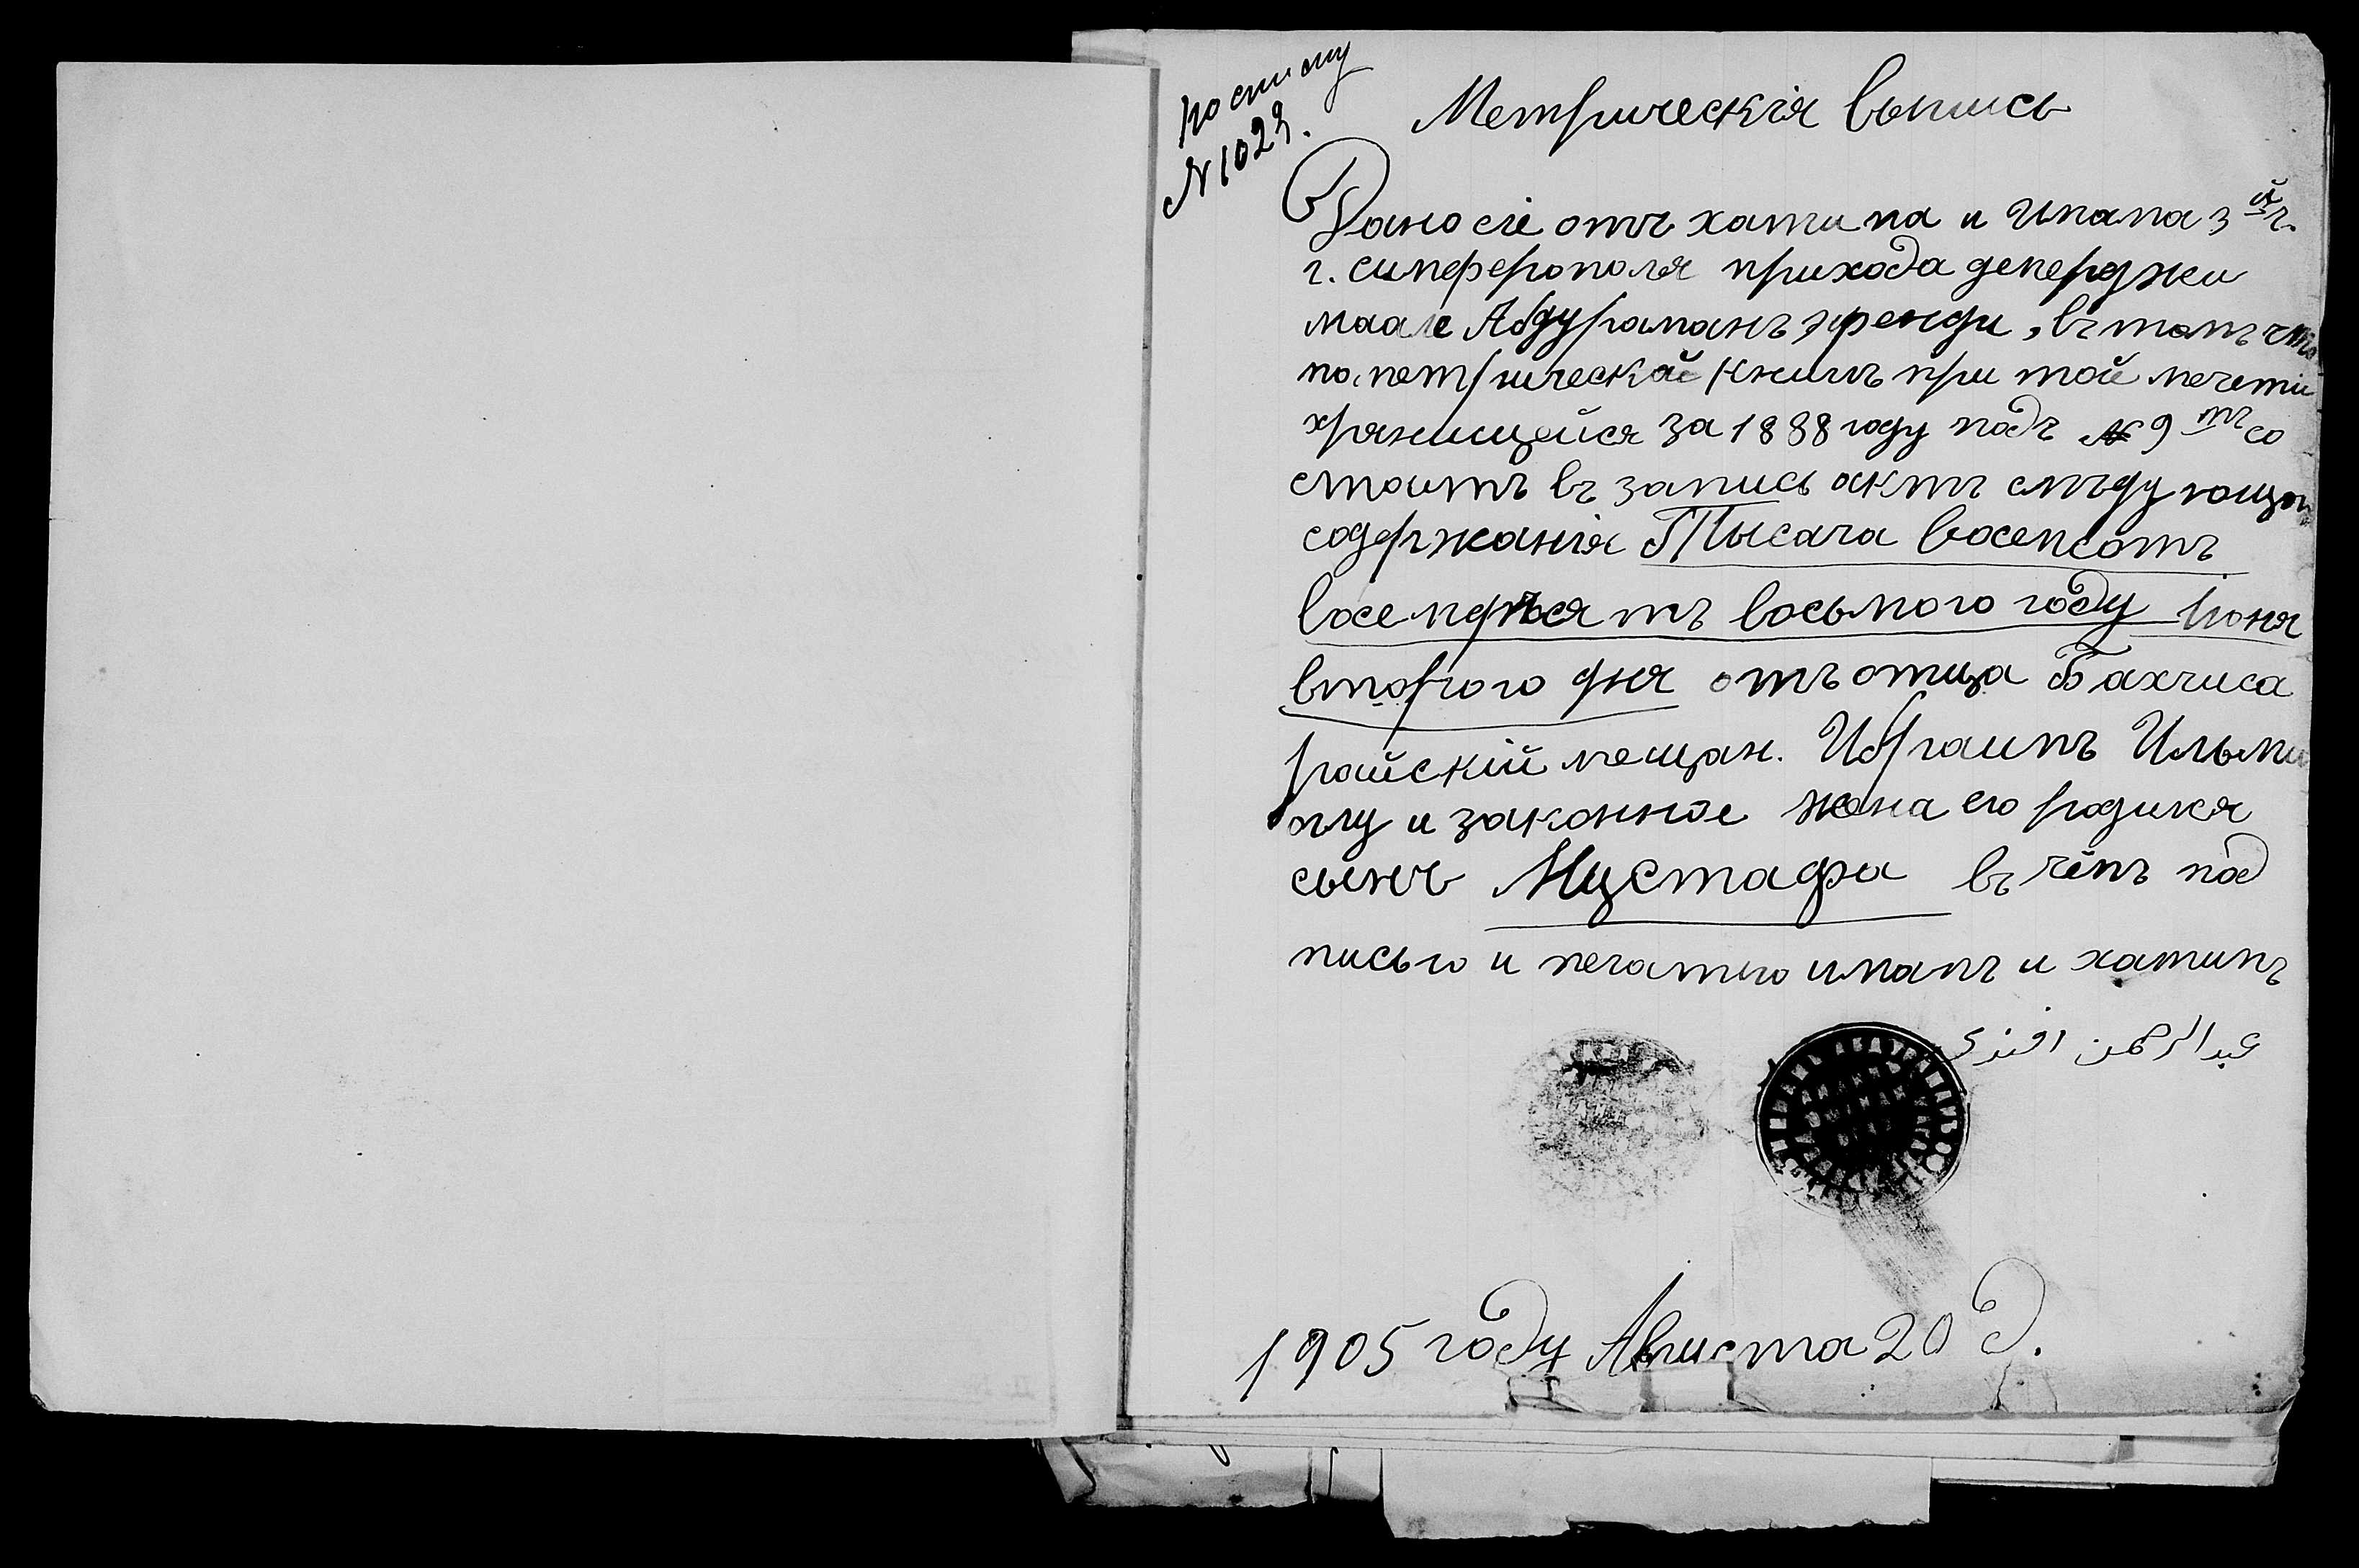 по списку
№ 1029.
Метрическія выпись
Дано сіе отъ хатипа и Имама 3 й ч.
г. симферополя прихода деперджи
маале Абдураманъ эфенди, въ томъ что
по метрической книгъ при той мечети
хранищейся за 1888 году подъ № 9 тъ со
стоитъ въ запись актъ слъдующи
содержанія Тысача восемсотъ
восемдъсятъ восьмого году Іюня
второго дня отъ отца Бахчиса
райскій мещан. Ибраимъ Ильми
оглу и законное жена его родился
сынъ Мустафа въ чёмъ под
писью и печатью имамъ и хатипъ
عبد الرحمن افندی
1905 году Августа 20 д.